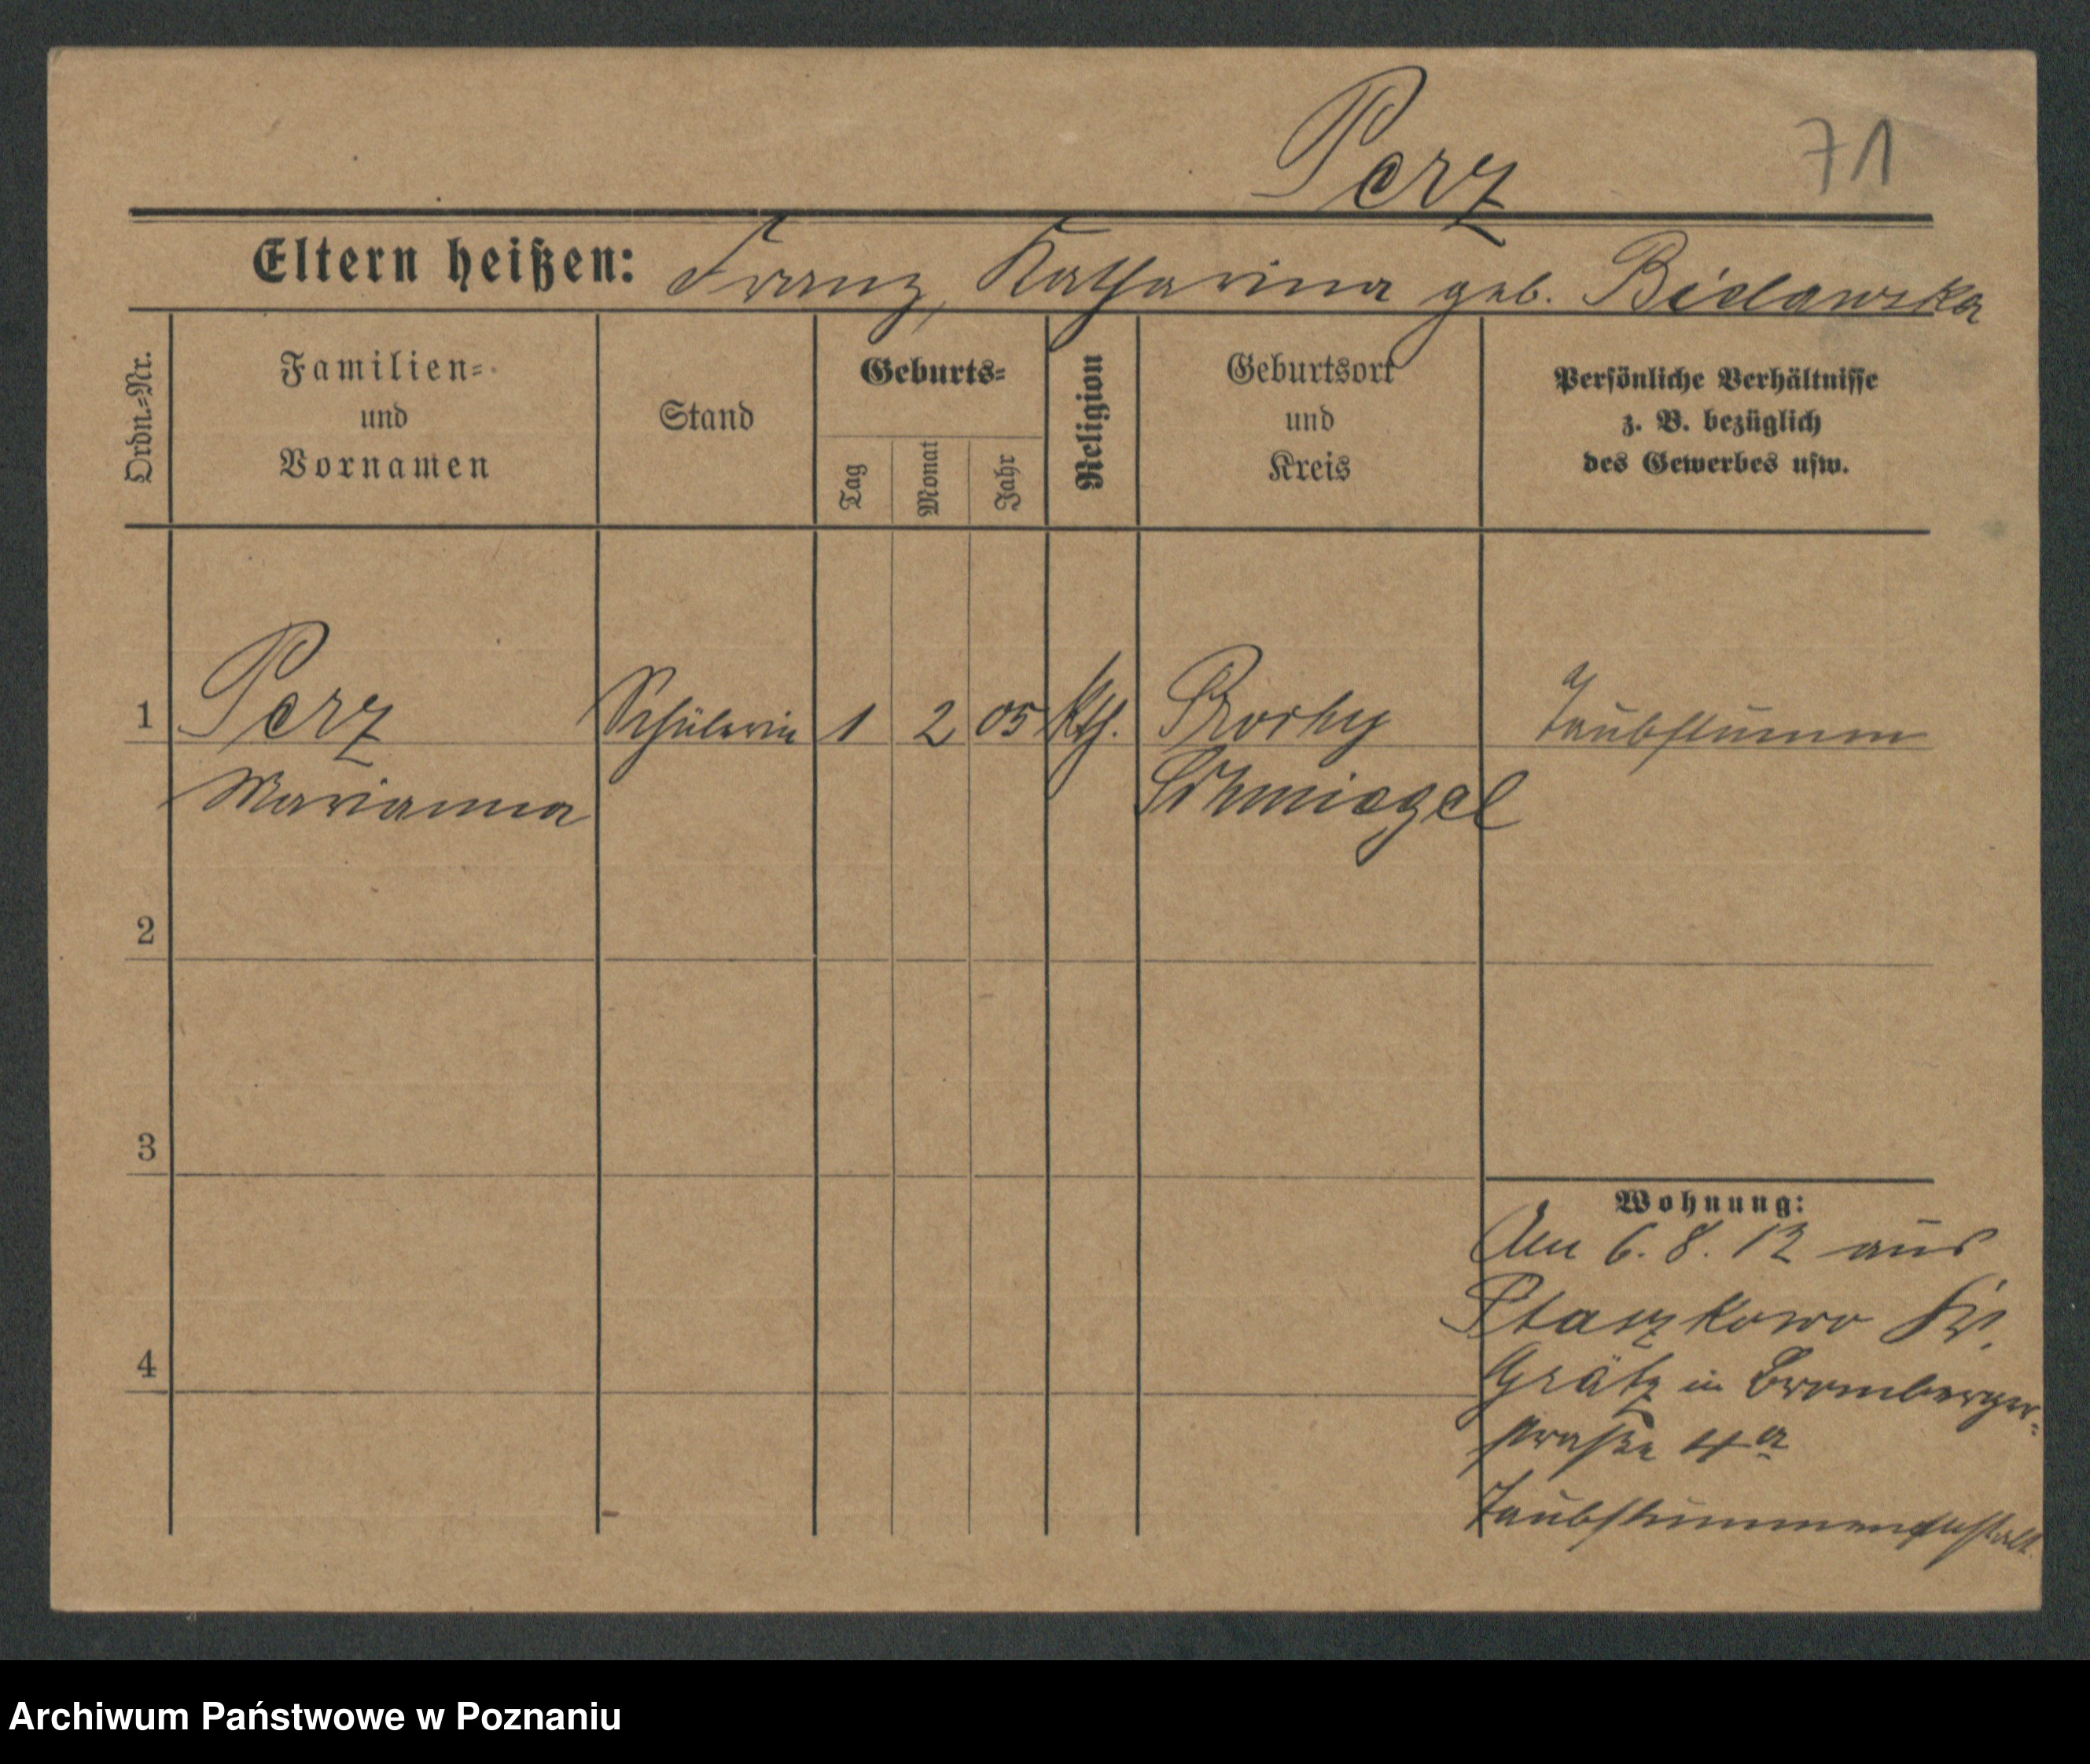 Perz
71
Eltern heißen: Franz, Katharina geb. Bielawska
Ordn.-Nr.
Familien- und Vornamen
Stand
Geburts-
Tag
Monat
Jahr
Religion
Geburtsort und Kreis
Persönliche Verhältnisse z. B. bezüglich des Gewerbes usw.
1 Perz Schülerin 1 2 05 kth. Taubstumm
Marianna Schmiegel
2
3
4
Wohnung:
Am 6. 8. 12 aus
Ptaszkowo Kr.
Grätz in Bromberger-
straße 4a
Taubstummenanstalt.
Archiwum Państwowe w Poznaniu